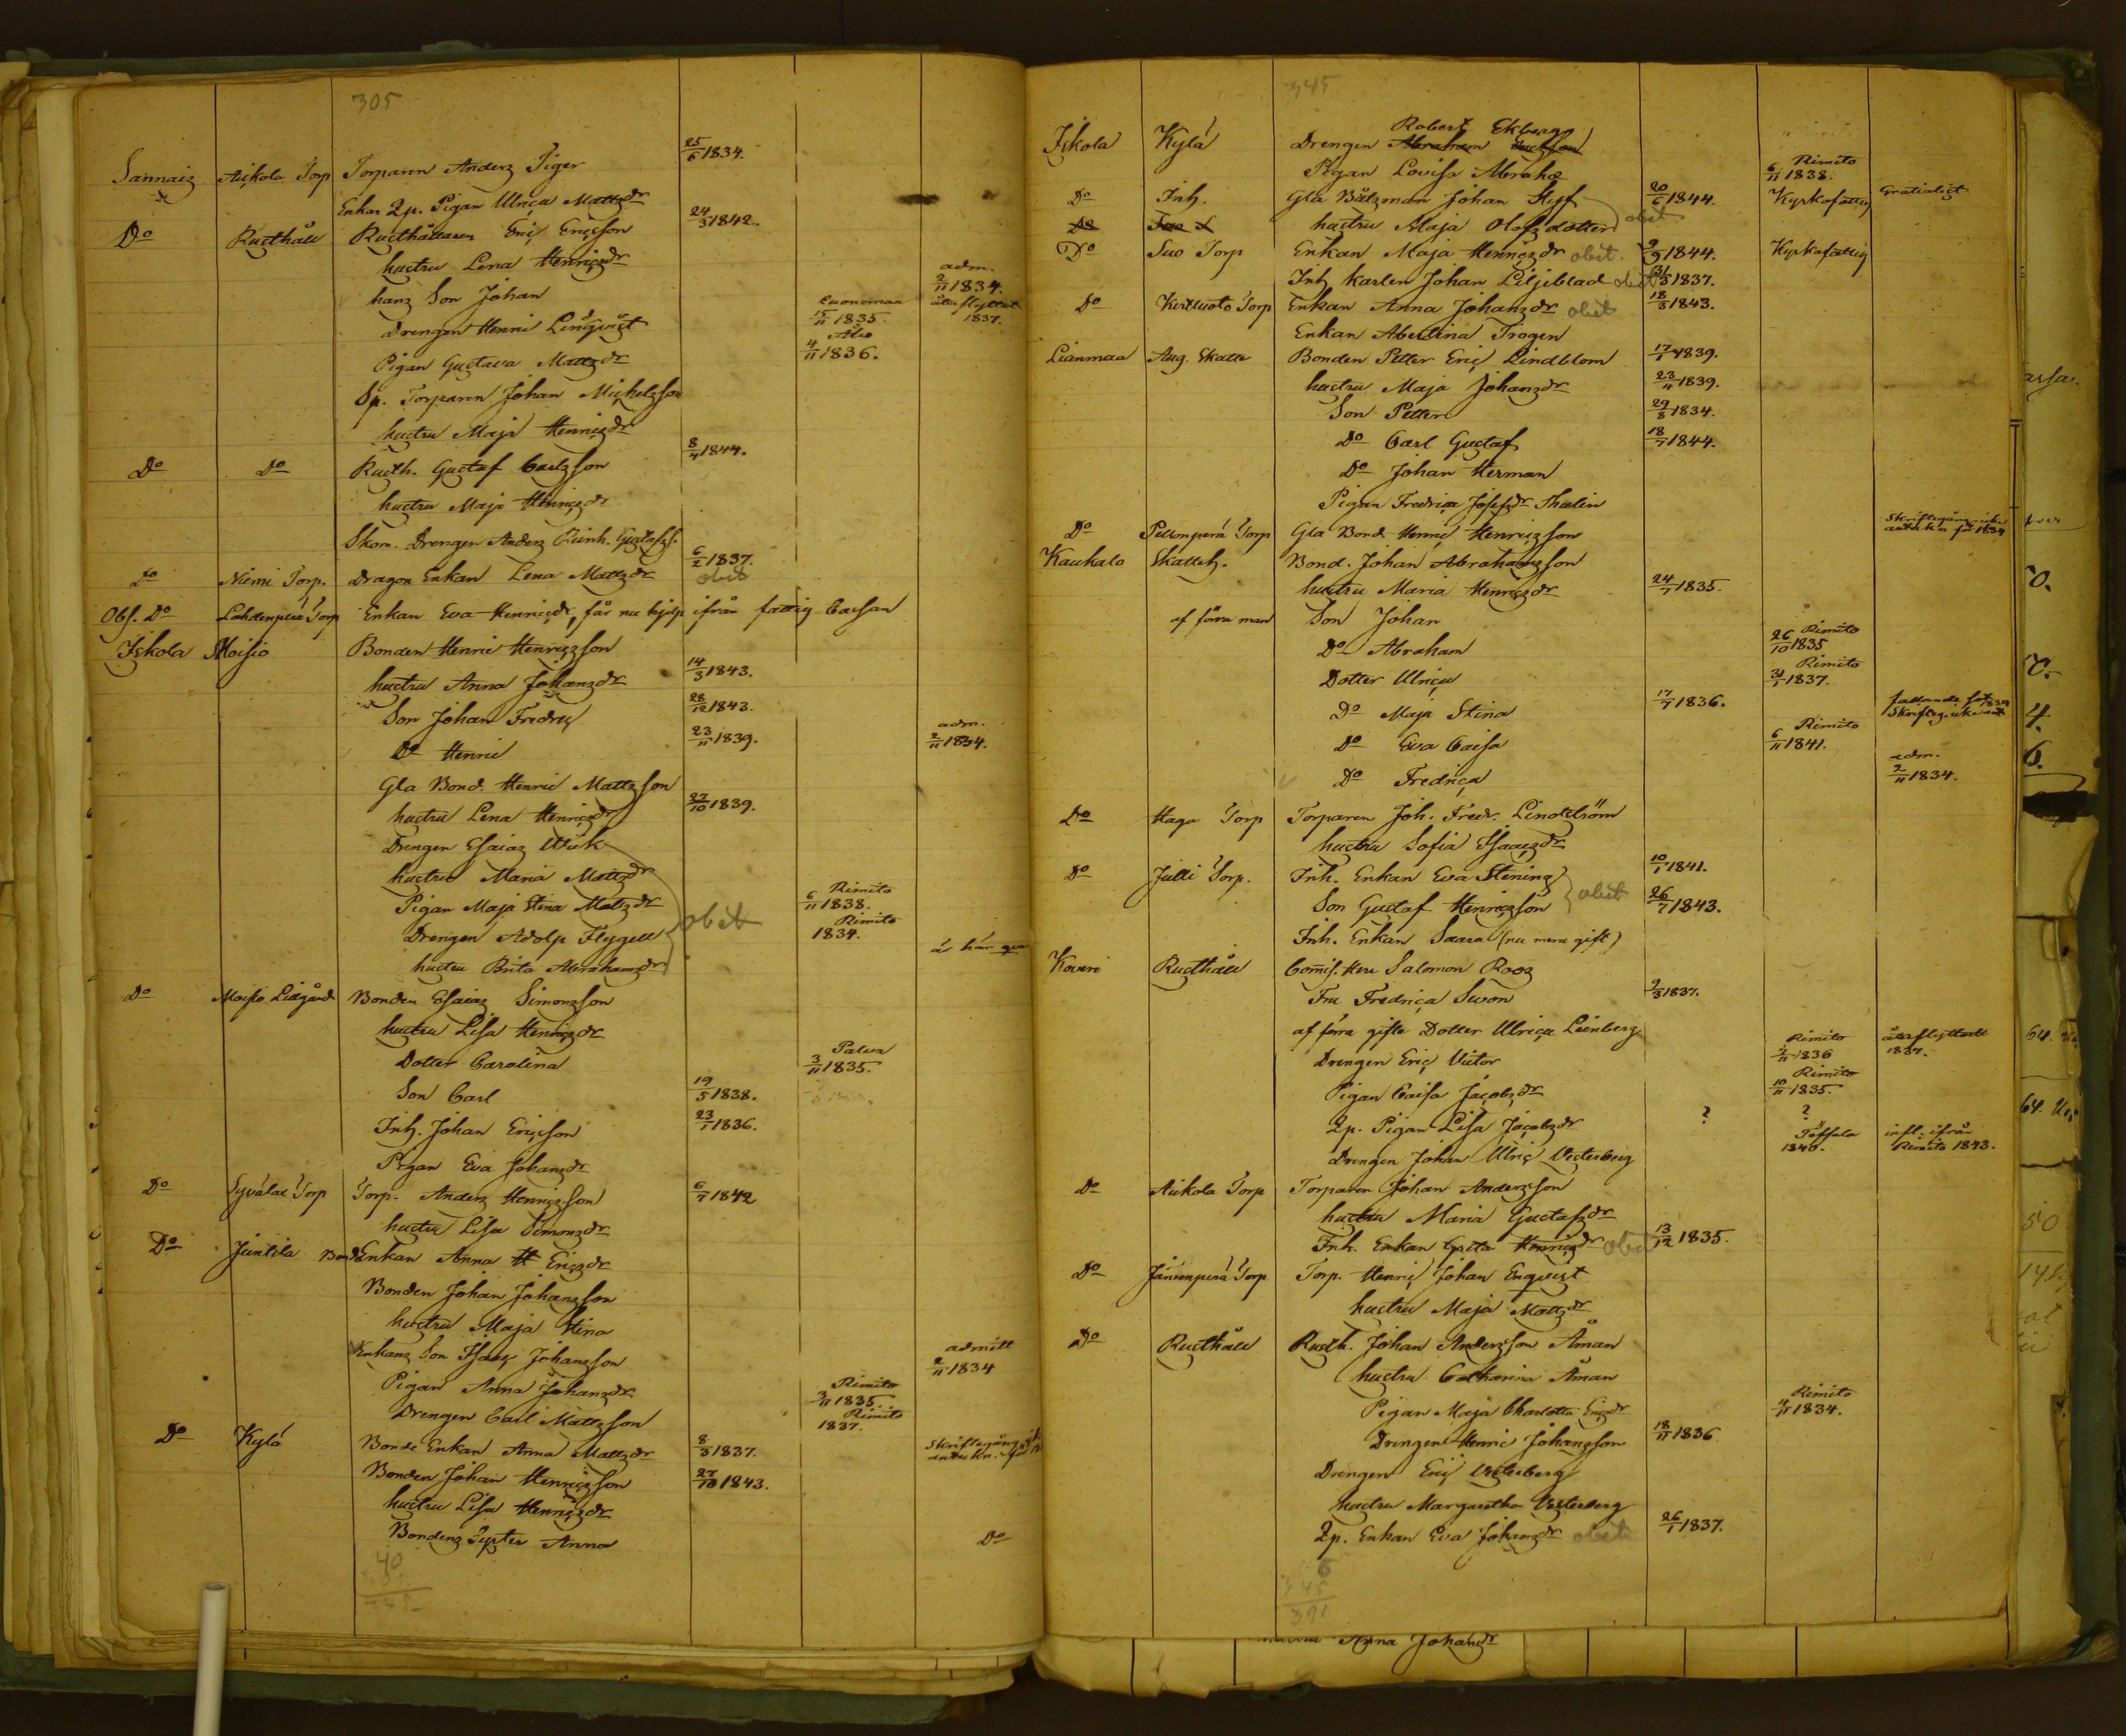 305
Sannais Aickola Torp Torparen Anders Tiger 25/6 1834.
Enkan Qp. Pigan Ulrica Mattsdr
Do Rusthåll Rusthållaren Eric Ericson 24/3 1842.
hustru Lena Henricsdr
hans Son Johan adm. 2/11 1834.
Drengen Henric Lindqvist 15/11 1835. återflyttat 1837.
Pigan Gustava Mattsdr Åbo 4/11 1836.
Sp. Torparen Johan Michelsson
hustru Maja Henricsdr
Do Do Rusth. Gustaf Carlsson 8/4 1844.
hustru Maja Henricsdr
Skom. Drengen Anders Reinh. Gustafs.
Do Niemi Torp. Dragon Enkan Lena Mattsdr 6/2 1837. obiit
Obs. Do Lahdenperä Torp Enkan Eva Henricsdr, får nu hjelp ifrån fattig Cassan
Iskola Moisio Bonden Henric Henricsson
hustru Anna Johansdr 14/3 1843.
Son Johan Fredric 28/12 1843.
Do Henric 23/11 1839. adm. 2/11 1834.
Gla Bond. Henric Mattsson
hustru Lena Henricsdr 27/10 1839.
Drengen Esaias Wiik
hustru Maria Mattsdr
Pigan Maja Stina Mattsdr obiit Rimito 6/11 1838.
Drengen Adolp Flygell Rimito 1834.
hustru Brita Abrahamsdr är här qvar
Do Moisio Lillgård Bonden Esaias Simonsson
hustru Lisa Henricsdr
Dotter Carolina 3/11 1835.
Son Carl 19/5 1838.
Inh. Johan Ericson 23/1 1836.
Pigan Eva Johansdr
Do Syvälax Torp Torp. Anders Henricsson 6/7 1842
hustru Lisa Simonsdr
Do Juntila Bonde Enkan Anna Ericsdr
Bonden Johan Johansson
hustru Maja Stina
Enkans Son Isaac Johansson admitt 2/11 1834
Pigan Anna Johansdr Rimito 3/11 1835.
Drengen Carl Mattsson Rimito 1837.
Do Kylä Bonde Enkan Anna Mattsdr 8/3 1837. Skriftegång
Bonden Johan Henricsson 27/10 1843.
hustru Lisa Henricsdr
Bondens Syster Anna Do
40
345
Robert Ekberg
Iskola Kylä Drengen Abraham
Pigan Lovisa Abrah. Rimito 6/11 1838.
Do Inh. Gla Båtzman Johan Styf 20/6 1844. Kyrkofattig Gratialist
Do hustru Maja Olofsdotter obiit
Do Suo Torp Enkan Maja Henricsdr obiit 9/9 1844. Kyrkofattig
Inh. Karlen Johan Liljeblad obiit 31/5 1837.
Do Kirkkuoto Torp Enkan Anna Johansdr obiit 18/3 1843.
Enkan Abertina Trogen
Lianmaa Aug. Skatte Bonden Petter Eric Lindblom 17/1 1839.
hustru Maja Johansdr 23/11 1839.
Son Petter 29/8 1834.
Do Carl Gustaf 18/7 1844.
Do Johan Herman
Pigan Fredrica Josefsdr Thalin
Do Pellonperä Torp Gla Bond. Henric Henricsson
Kaukalo Skatteh. Bond. Johan Abrahamsson
hustru Maria Henricsdr 24/7 1835.
af förra man Son Johan
Do Abraham Rimito 26/10 1835
Dotter Ulrica Rimito 31/1 1837.
Do Maja Stina 17/7 1836.
Do Eva Caisa Rimito 6/11 1841.
Do Fredrica adm. 2/11 1834.
Do Haga Torp Torparen Joh. Fredr. Lindström
hustru Sofia Isaacsdr
Do Julli Torp. Inh. Enkan Eva Stening 10/1 1841.
Son Gustaf Henricsson obiit 26/7 1843.
Inh. Enkan Saara (nu mera gift)
Koveri Rusthåll Comiss. Herr Salomon Roos
Fru Fredrica Swon 9/3 1837.
af förra gifte Dotter Ulrica Leinberg
Drengen Eric Victor Rimito 2/11 1836 återflyttatt 1837.
Pigan Caisa Jacobsdr Rimito 10/11 1835.
Qp. Pigan Lisa Jacobsdr ? ?
Drengen Johan Ulric Vesterberg Töfsala 1840. infl. ifrån Rimito 1843.
Do Aickola Torp Torparen Johan Andersson
hustru Maria Gustafsdr
Inh. Enkan Greta Henricsdr obiit 13/12 1835.
Do Jänienperä Torp Torp. Henric Johan Enqvist
hustru Maja Mattsdr
Do Rusthåll Rusth. Johan Andersson Åman
hustru Catharina Åman
Pigan Maja Charlotta Ericsdr Rimito 4/11 1834.
Drengen Henric Johansson 18/11 1836
Drengen Eric Vesterberg
hustru Margaretha Vesterberg
Qp. Enkan Eva Johansdr obiit 26/1 1837.
6
345
391
Anna Johansdr